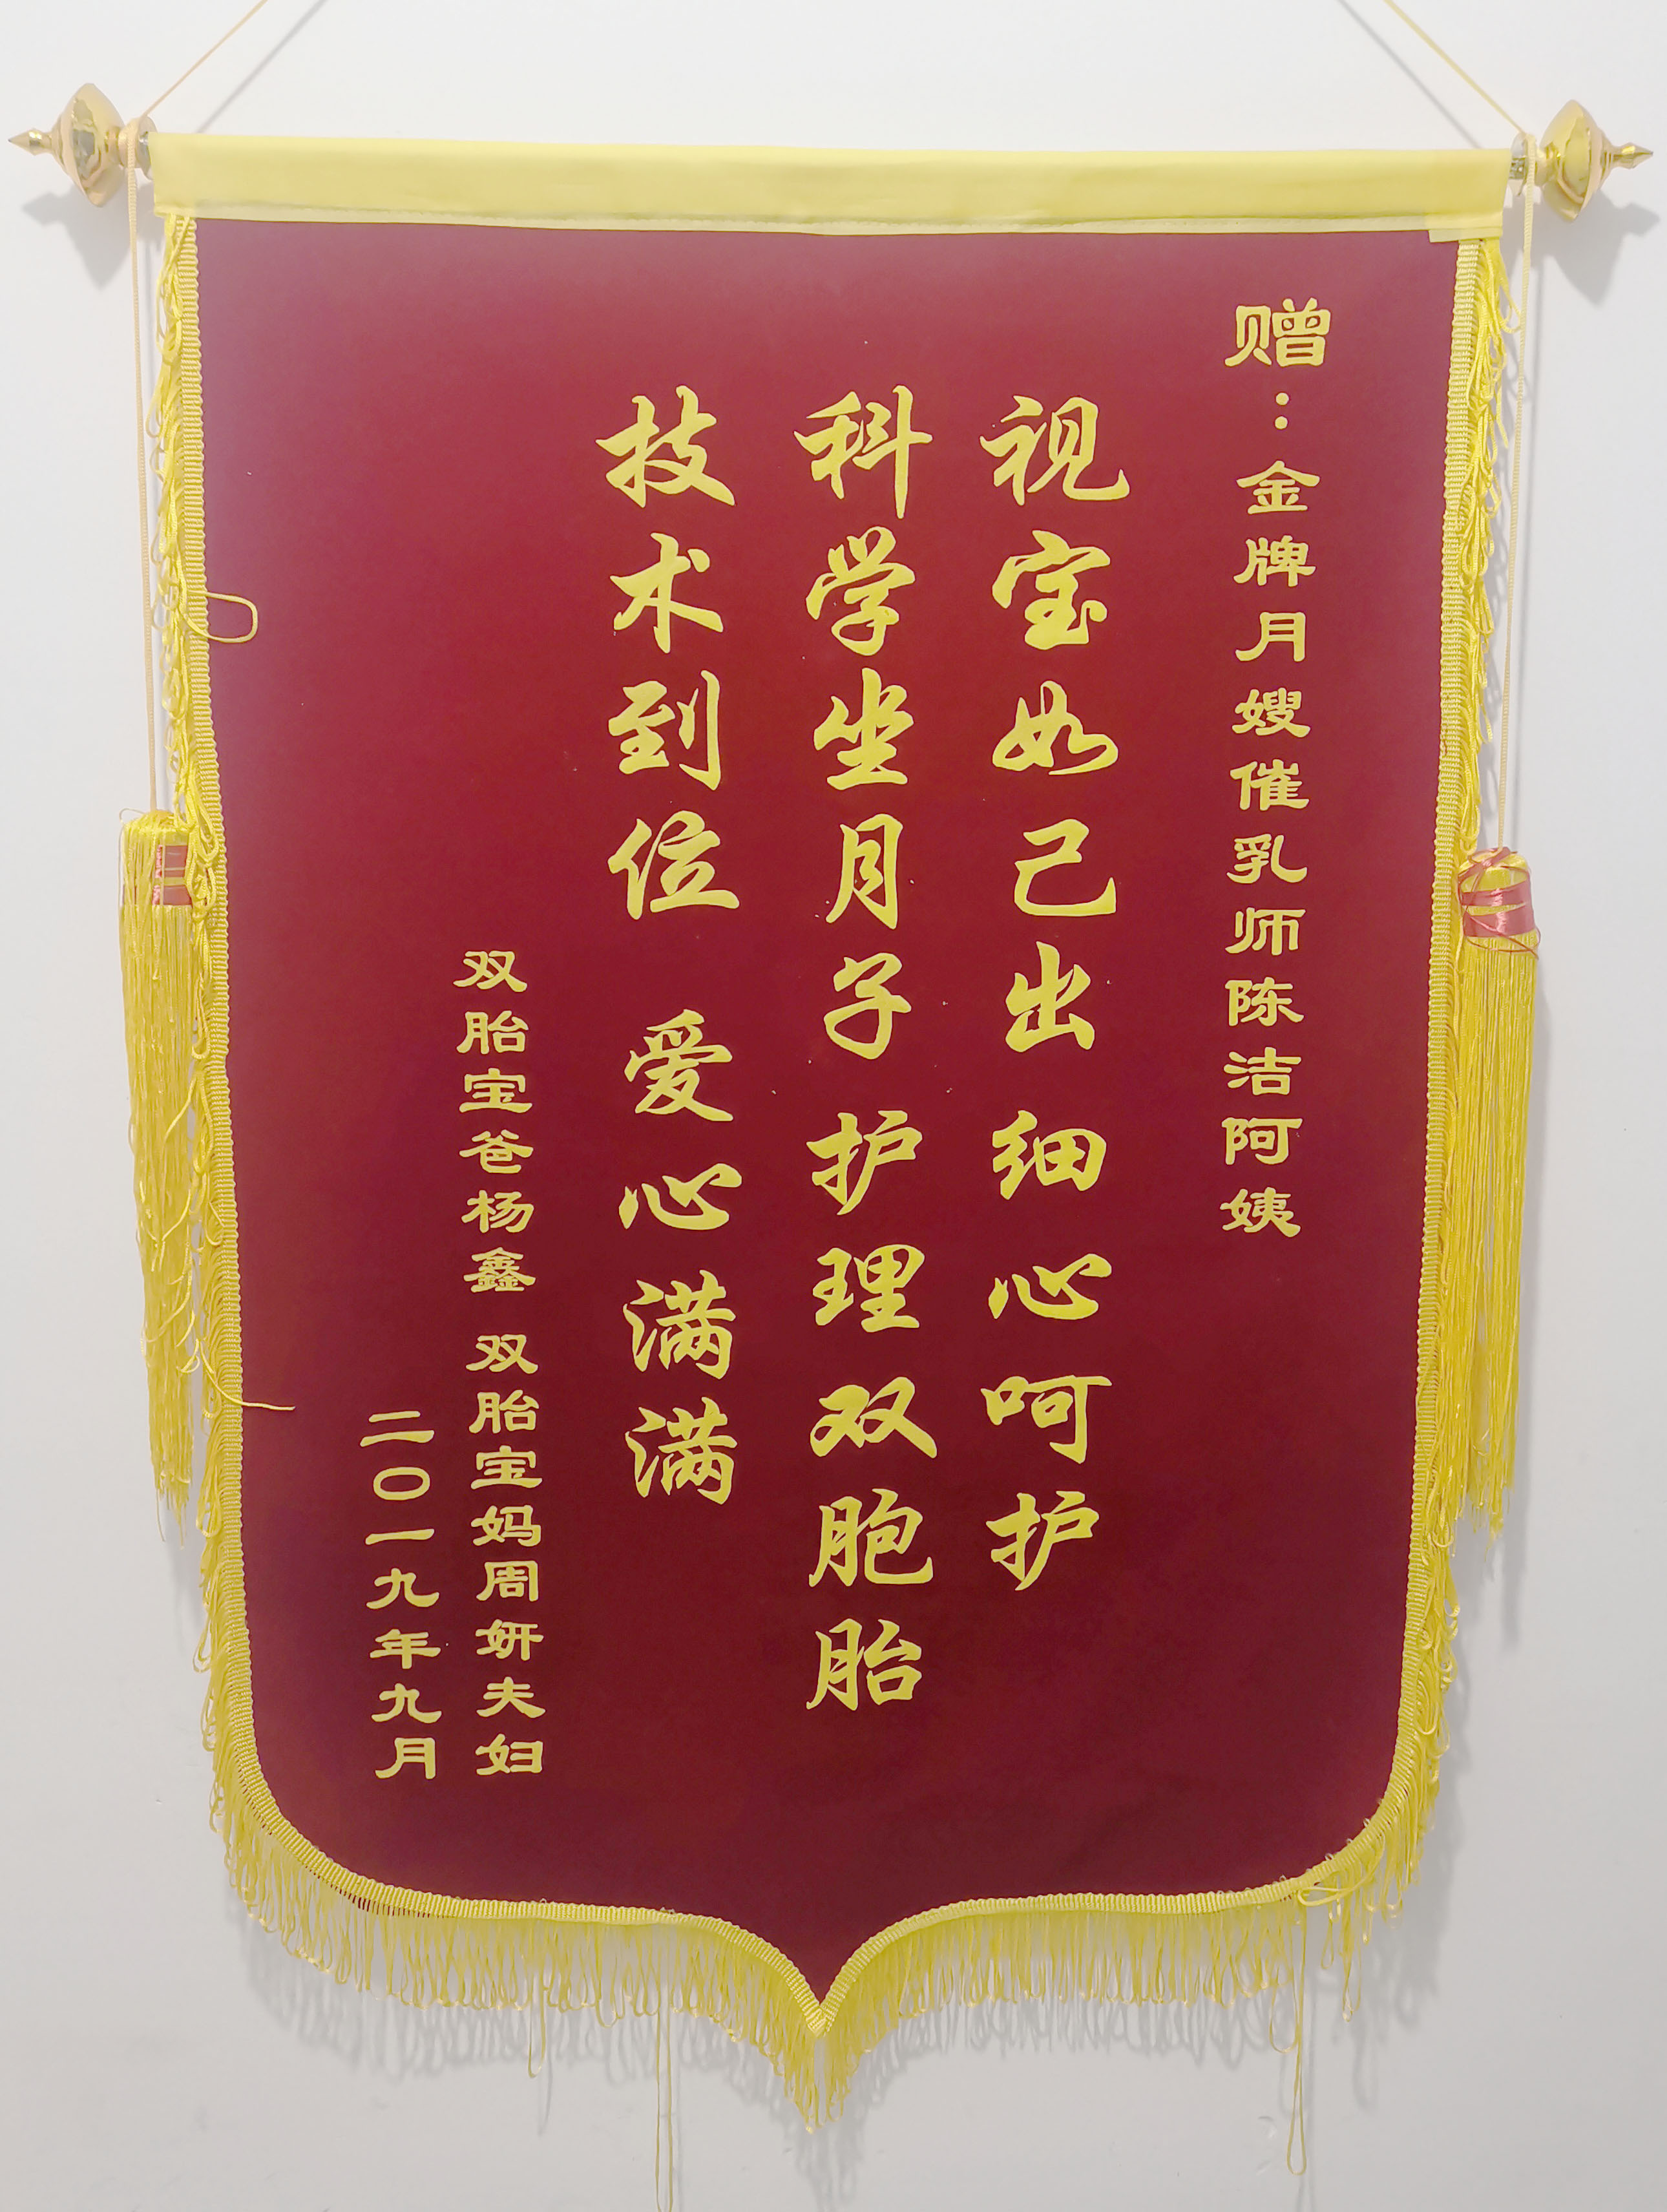 赠：金牌月嫂催乳师陈洁阿姨
视宝如己出细心呵护
科学坐月子护理双胞胎
技术到位 爱心满满
双胎宝爸杨鑫 双胎宝妈周妍夫妇
二〇一九年九月